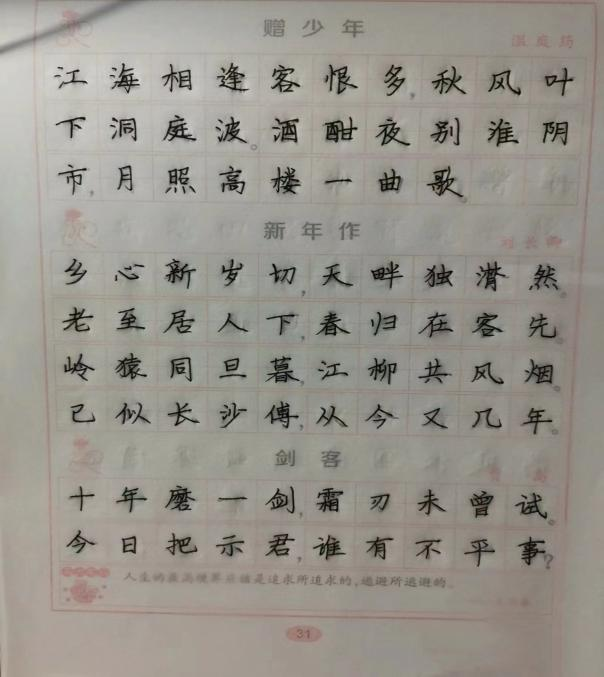 赠少年
温庭筠
江海相逢客恨多,秋风叶
下洞庭波。酒酣夜别淮阴
市,月照高楼一曲歌。
新年作
刘长卿
乡心新岁切,天畔独潸然。
老至居人下,春归在客先。
岭猿同旦暮,江柳共风烟。
已似长沙傅,从今又几年。
剑客
十年磨一剑,霜刃未曾试。
今日把示君,谁有不平事?
人生的最高境界应该是追求所追求的,逃避所逃避的。
31